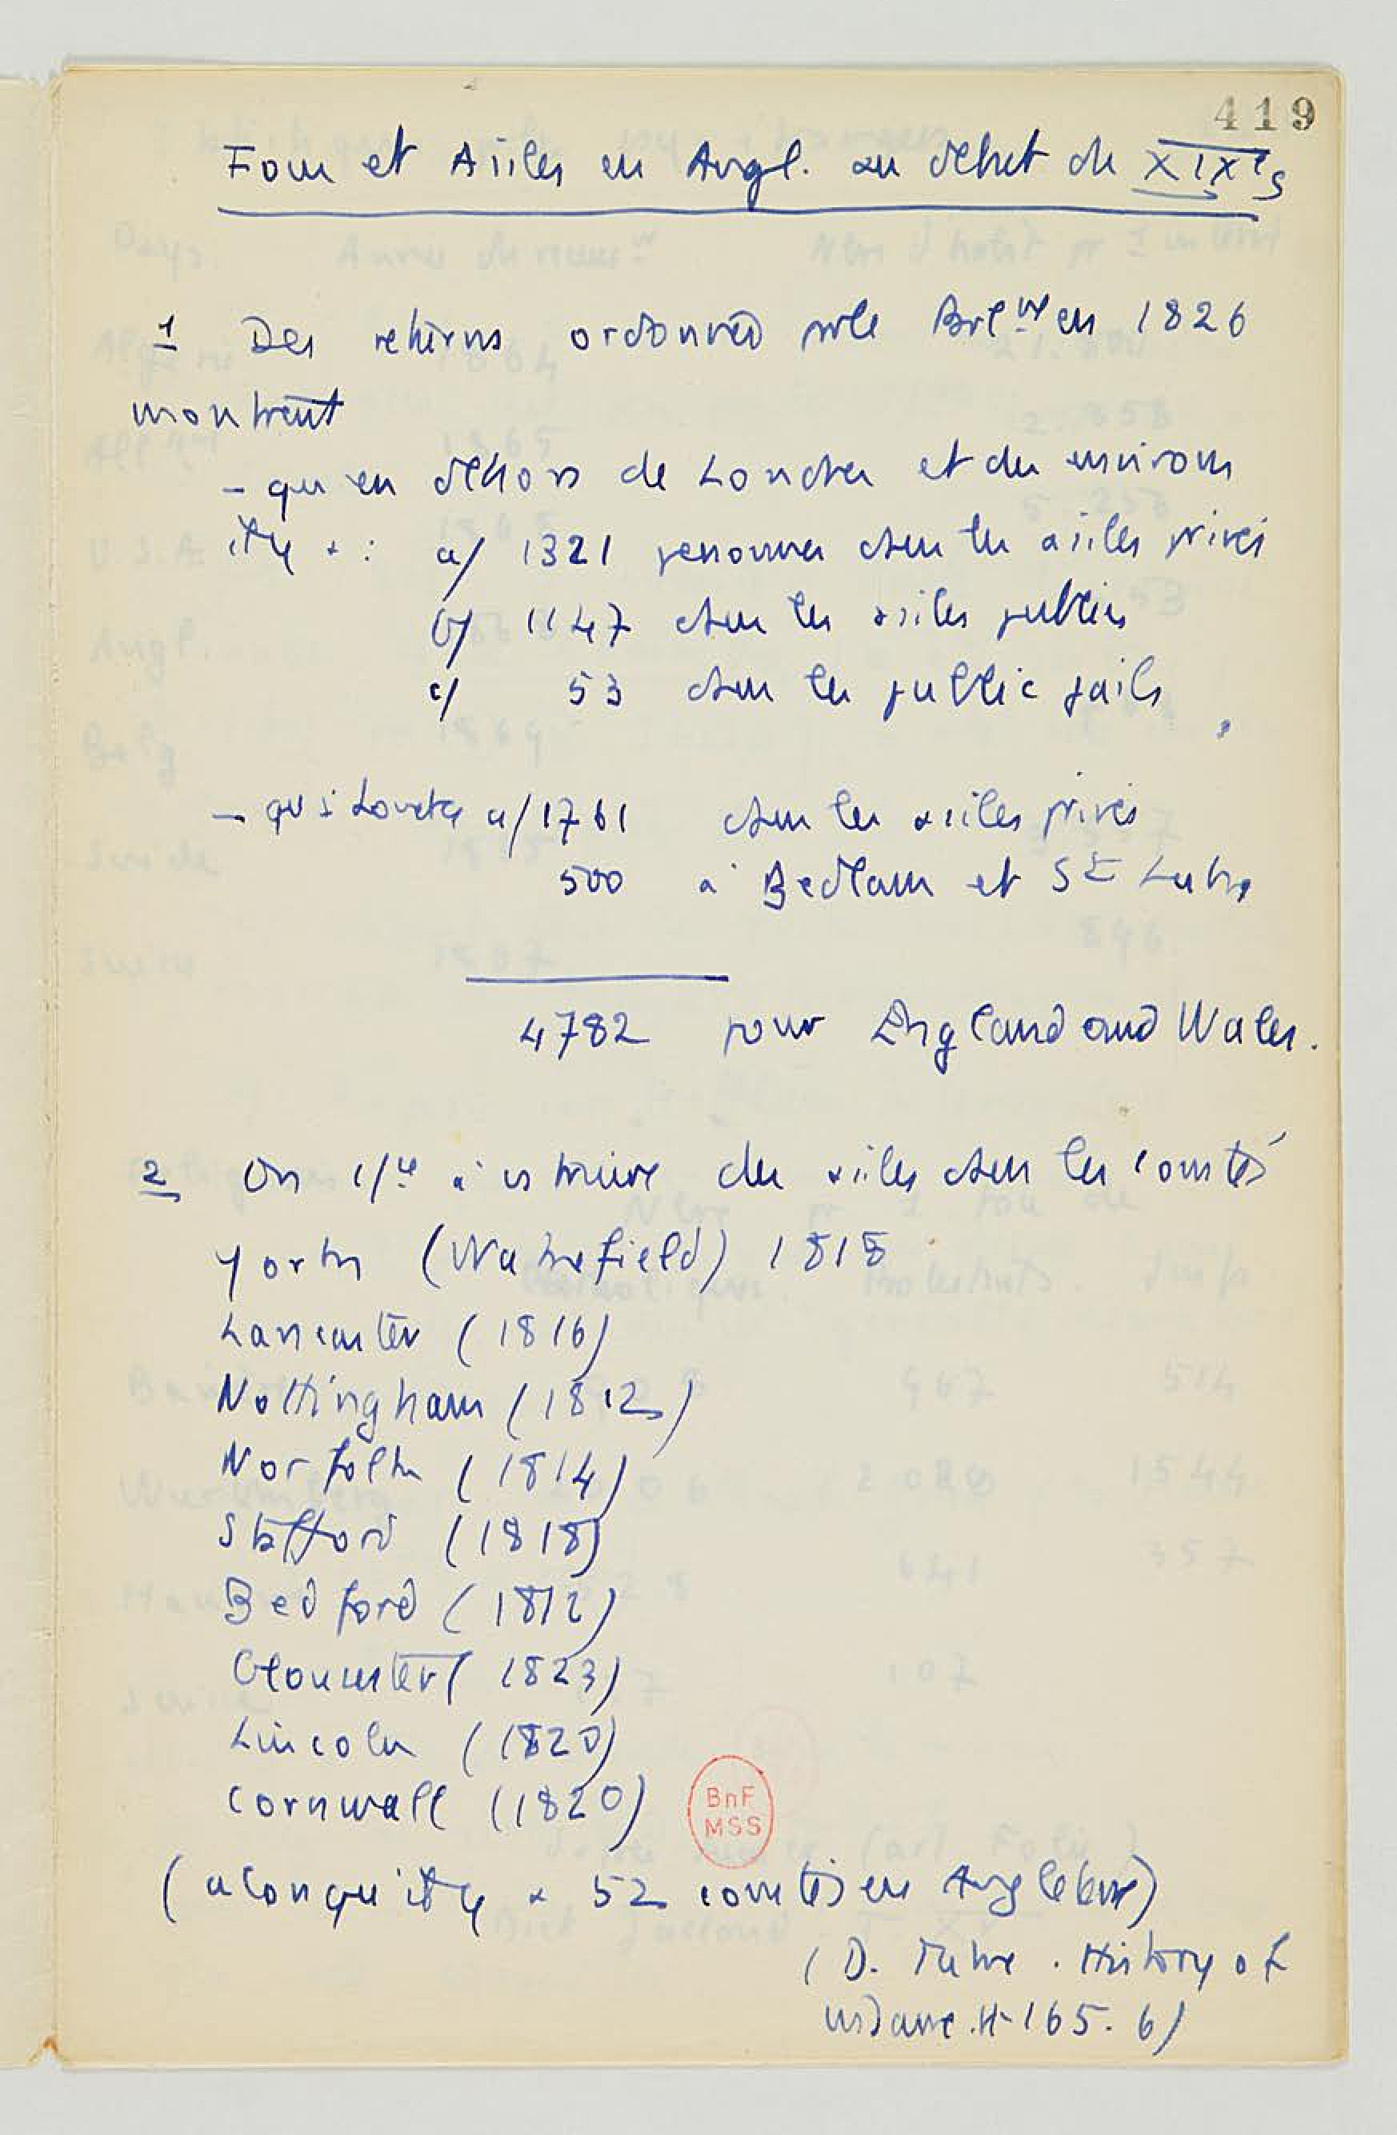 419
Fous et Asiles en Angl. au début du XIXe s
1 Des returns ordonnés par le Parl.nt en 1826
montrent
- qu'en dehors de Londres et des environs
il y a : a/ 1321 personnes dans les asiles privés
b/ 1147 dans les asiles publics
c/ 53 dans les public jails
- qu'à Londres a/ 1761 dans les asiles privés
500 à Bedlam et St Luke
4782 pour England and Wales.
2 On à construire des asiles dans les comtés
York (Wakefield) 1818
Lancaster (1816)
Nottingham (1812)
Norfolk (1814)
Stafford (1818)
Bedford (1812)
Gloucester (1823)
Lincoln (1820)
Cornwall (1820)
BnF
MSS
(alors qu'il y a 52 comtés en Angleterre)
(D. Tuke. History of
insane. 165.6)